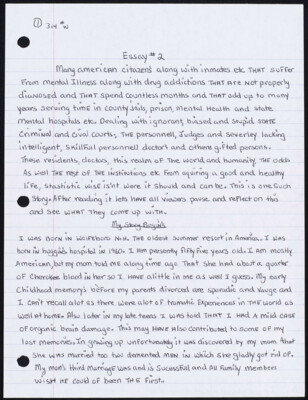 ① 314 #W
Essay #2
Many american citizens along with inmates etc THAT SUFFER
From mental Illness along with drug addictions THAT ARE NOT properly
diagnosed and THAT spend countless months and THAT add up to many
years Serving Time in county jails, prison, mental Health and state
mental hospitals etc. Dealing with ignorant, biased and stupid STATE
Criminal and Civil courts, THE personnell, Judges and severley lacking
intelligent, skillful personnell doctors and others gifted persons.
These residents, doctors, this realm of The world and humanity. THE odds
As well THE rest of THE institutions etc From aquiring a good and healthy
life, stastistic wise isint were it should and can be. This is one such
Story. After reading it lets have all viewers pause and reflect on this
and see what They come up with.
My Story Begins
I was born in Wolfeboro N.H. THE oldest summer resort in America. I was
born in huggins hospital in 1960. I am presently fifty five years old. I am mostly
American, but my mom told me along time ago That she had about a quarter
of Cherokee blood in her so I have alittle in me as well I guess. My early
Childhood memory's before my parents divorced are sporadic and vauge and
I can't recall alot as there were alot of tramatic Experiences in THE world as
well at home. Also later in my late teens I was told THAT I had a mild case
of organic brain damage. This may have also contributed to some of my
lost memories. In growing up unfortunatley it was discovered by my mom that
she was married too two demented men in which she gladly got rid of.
My mom's third marriage was and is successfull and our Family members
wish HE could of been THE First.